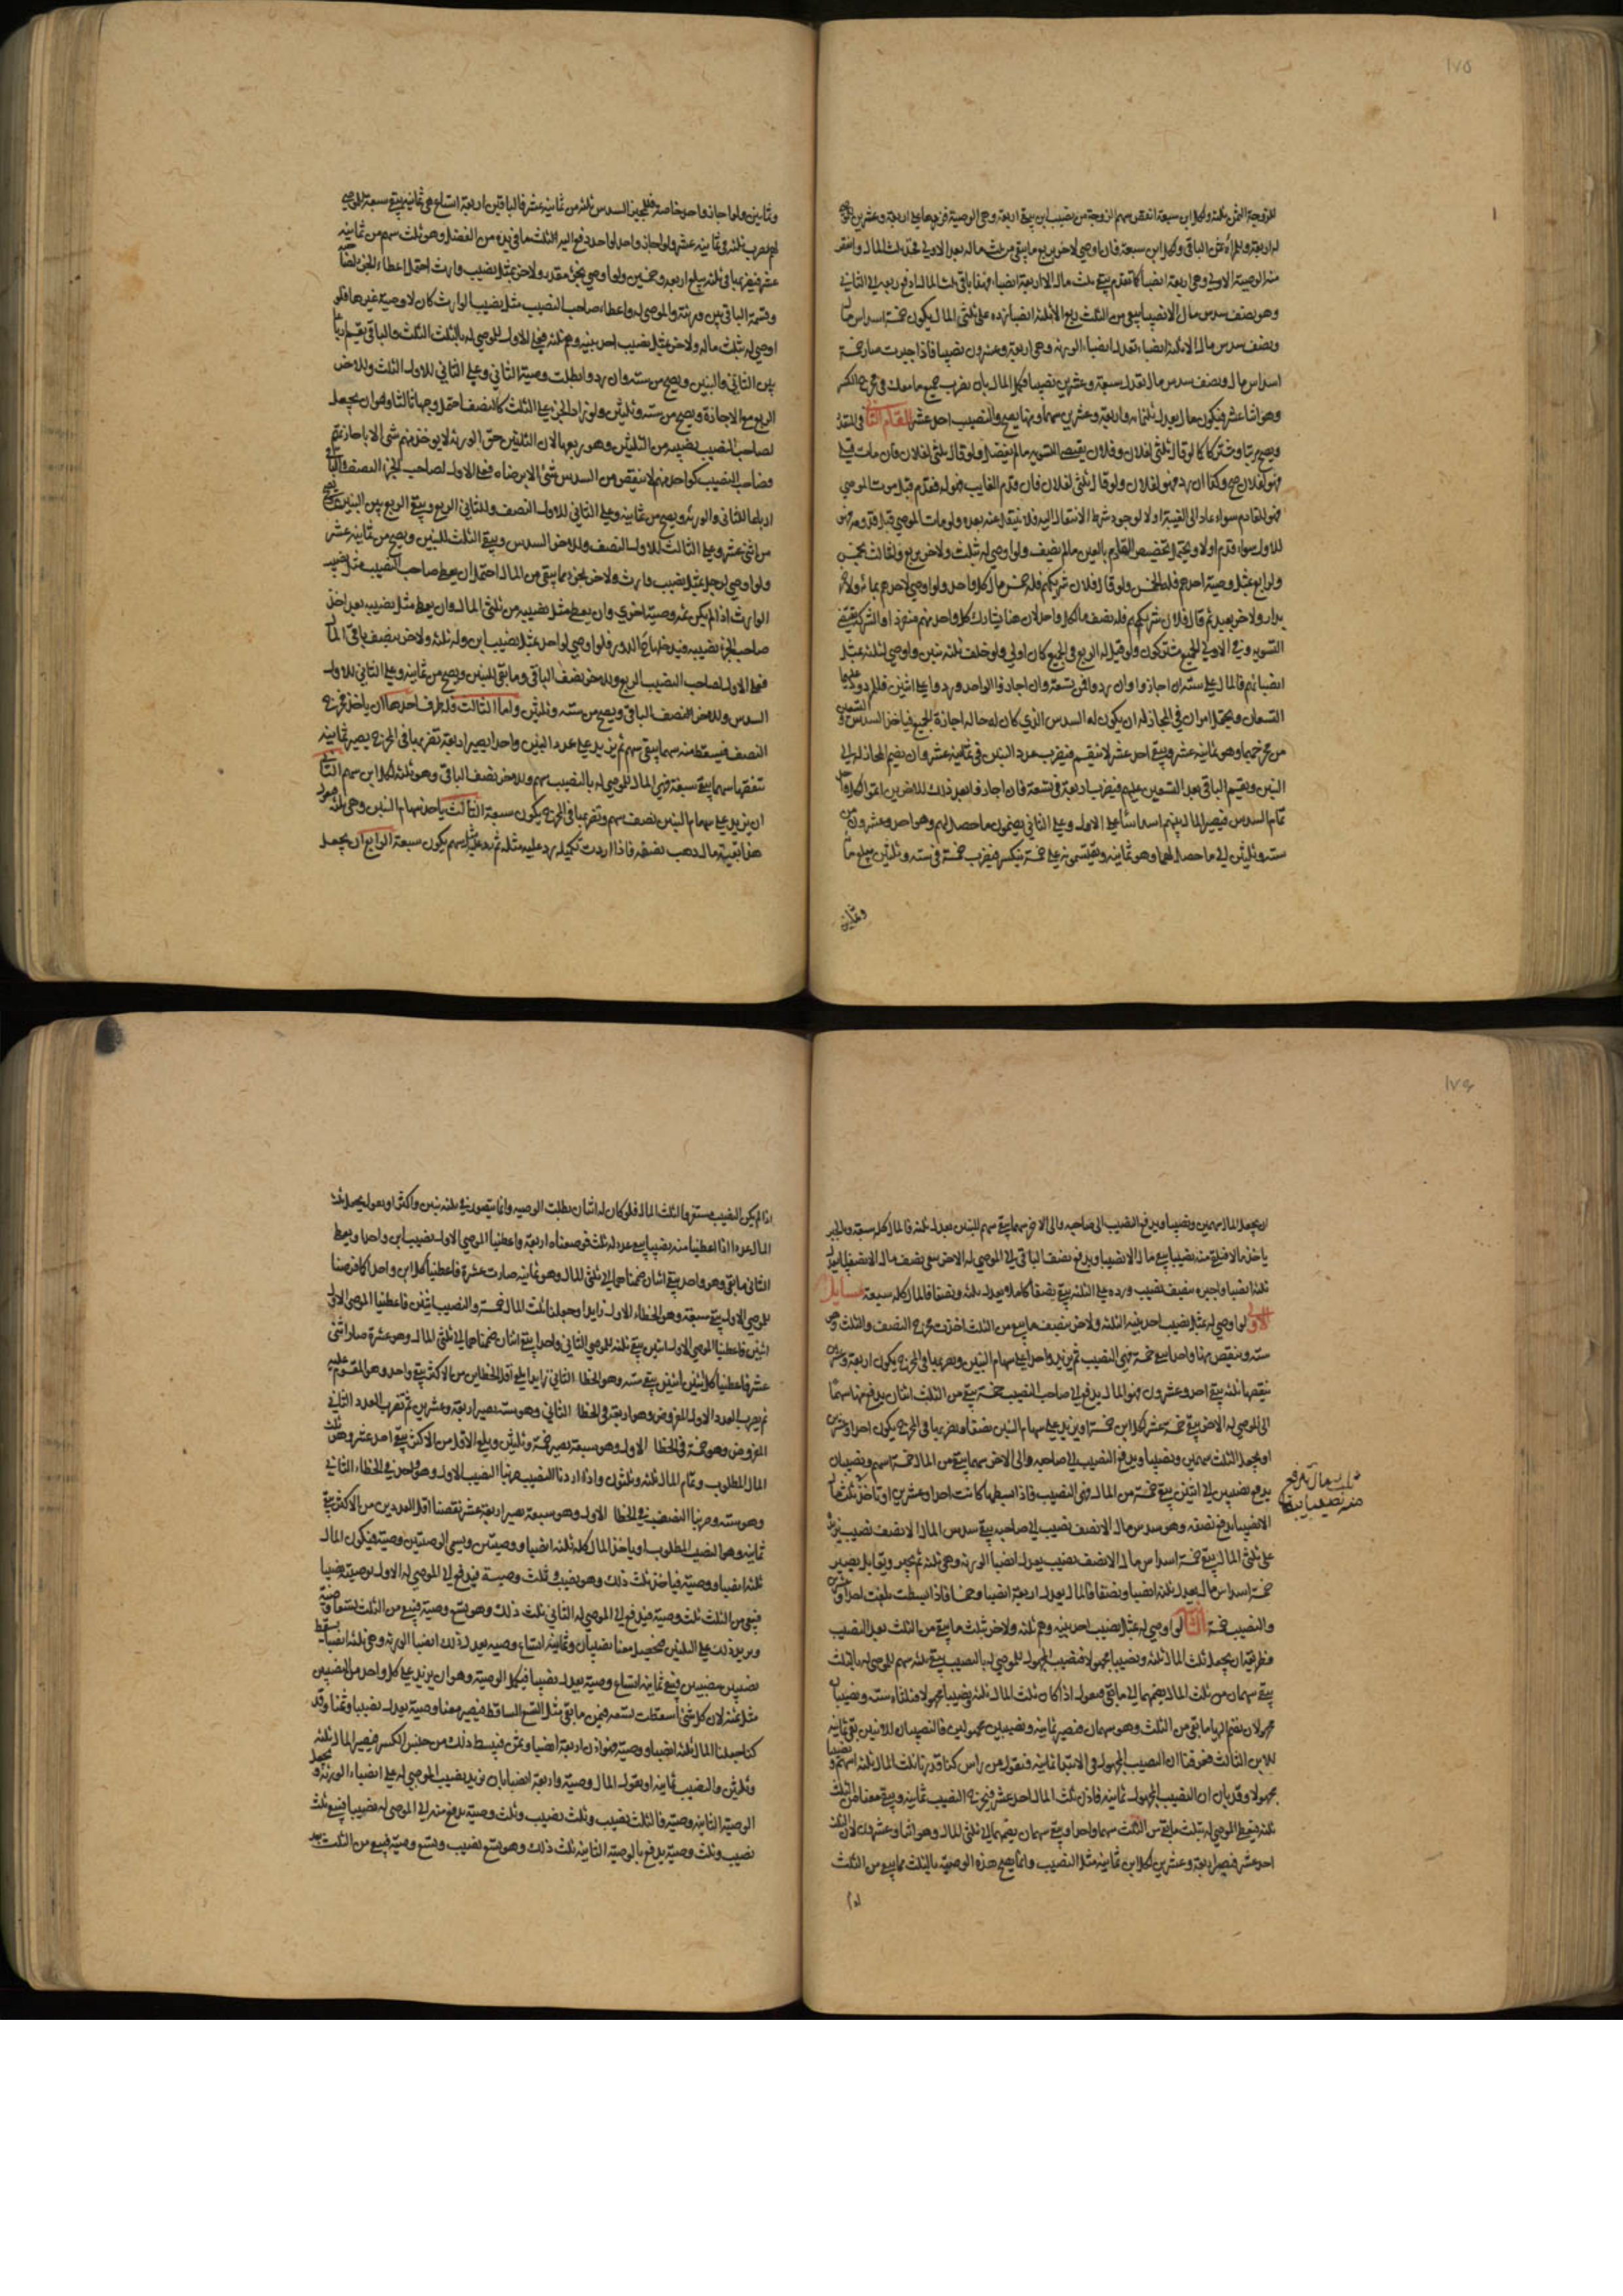 ١٧٥
للزوجة الثمن ثلثة ولكل ابن سبعة انقص سهم الزوجة من نصيب ابن يبقى اربعة وهي الوصية فزدها على اربعة وعشرين
منه الوصية الاولى وهي اربعة انصباء كما تقدم يبقى ثلث مال الا اربعة انصباء
وهو نصف سدس مال الا نصيبا يبقى من الثلث ربع الا ثلثة انصباء زده على ثلثي المال يكون خمسة اسداس مال
ونصف سدس مال الا ثلثة انصباء تعدل انصباء الورثة وهي اربعة وعشرون نصيبا فاذا جبرت صار خمسة
اسداس مال ونصف سدس مال تعدل سبعة وعشرين نصيبا فكمل المال بان تضرب جميع ما معك في مخرج الكسر
وهو اثنا عشر فيكون مال يعدل ثلثمائة واربعة وعشرين سهما ومنها يصح والنصيب احد عشر المقام الثاني
ويصح مرتبا ومشتركا كما لو قال ثلثي لفلان وفلان يقتضي التسوية ما لم يفضل ولو قال ثلثي لفلان فان مات قبلي
فهو لفلان صح وكذا ان رد فهو لفلان ولو قال ثلثي لفلان فان قدم الغايب فهو له فقدم قبل موت الموصي
فهو للقادم سواء عاد الى الغيبة او لا لوجود شرط الانتقال اليه فلا ينتقل عنه بعده ولو مات الموصي قبل قدومه فهو
للاول سواء قدم او لا ويحتمل تخصيص القادم بالعين ما لم يضف ولو اوصى له بثلث ولاخر بربع ولثالث بخمس
ولرابع بمثل وصية احدهم فله الخمس ولو قال فلان شريكهم فله خمس ما لكل واحد ولو اوصى لاحدهم بمائة ولاخر
بدار ولاخر بعبد ثم قال فلان شريكهم فله نصف ما لكل واحد لان هنا يشارك كل واحد منهم منفردا والشركة تقتضي
التسوية وفي الاولى الجميع مشتركون ولو قيل له الربع في الجميع كان اولى ولو خلف ثلثة بنين واوصى لثلثة بمثل
انصبائهم فالمال على ستة ان اجازوا وان ردوا فمن تسعة وان اجازوا لواحد وردوا على اثنين فللمردود عليهما
التسعان ويحتمل امران في المجاز له ان يكون له السدس الذي كان له حال اجازة الجميع فياخذ السدس والتسعان
من مخرجهما وهو ثمانية عشر ويبقى احد عشر لا تنقسم فيضرب عدد البنين في ثمانية عشر وان يضم المجاز له الى
البنين ويقسم الباقي بعد التسعين عليهم فيضرب اربعة في تسعة فان اجازوا بعد ذلك للاخرين اعطوا كل واحد
تمام السدس فيصير المال بينهم اسداسا على الاول وعلى الثاني يضمون ما حصل لهم وهو احد وعشرون من
ستة وثلثين الى ما حصل لهما وهو ثمانية ويقتسمونه على خمسة ينكسر فيضرب خمسة في ستة وثلثين يبلغ مائة
وثمانين
وثمانين ولو اجاز واحد خاصة فللمجيز السدس ثلثة من ثمانية عشر فالباقين اربعة اتساع هي ثمانية يبقى سبعة للموصى
لهم تضرب ثلثة في ثمانية عشر ولو اجاز واحد لواحد دفع اليه الثلث ما في يده من الفضل وهو ثلث سهم من ثمانية
عشر فيضربها في ثلثة يبلغ اربعة وخمسين ولو اوصى بجزء مقدر ولاخر بمثل نصيب وارث احتمل اعطاء الجزء لصاحبه
وقسمة الباقي بين ورثته والموصى له واعطاء صاحب النصيب مثل نصيب الوارث كان لا وصية غيرها فلو
اوصى له بثلث ماله ولاخر بمثل نصيب احد بنيه وهم ثلثة فعلى الاول للموصى له بالثلث الثلث والباقي يقسم ارباعا
بين الثاني والبنين ويصح من ستة وان ردوا بطلت وصية الثاني وعلى الثاني للاول الثلث وللاخر
الربع مع الاجازة ويصح من ستة وثلثين ولو زاد الجزء على الثلث كالنصف احتمل وجها ثالثا وهو ان يجعل
لصاحب النصيب نصيبه من الثلثين وهو ربعها لان الثلثين حق الورثة لا يوخذ منهم شئ الا باجازتهم
وصاحب النصيب كواحد منهم لا ينقص من السدس شئ الا برضاه فعلى الاول لصاحب الجزء النصف والباقي
ارباعا للثاني والورثة ويصح من ثمانية وعلى الثاني للاول النصف وللثاني الربع ويبقى الربع بين البنين ويصح
من اثنى عشر وعلى الثالث للاول النصف وللاخر السدس ويبقى الثلث للبنين ويصح من ثمانية عشر
ولو اوصى لرجل بمثل نصيب وارث ولاخر بجزء مما يبقى من المال احتمل ان يعطى صاحب النصيب مثل نصيب
الوارث اذا لم يكن ثمه وصية اخرى وان يعطى مثل نصيبه من ثلثي المال وان يعطى مثل نصيبه بعد اخذ
صاحب الجزء نصيبه فيدخلها الدور فلو اوصى لواحد بمثل نصيب ابن وله ثلثة ولاخر بنصف باقي المال
فعلى الاول لصاحب النصيب الربع وللاخر نصف الباقي وما بقي للبنين ويصح من ثمانية وعلى الثاني للاول
السدس وللاخر نصف الباقي ويصح من ستة وثلثين واما الثالث فله طرف احدها ان ياخذ مخرج
النصف فيسقط منه سهما يبقى سهم ثم يزيد على عدد البنين واحدا يصير اربعة تضربها في المخرج يصير ثمانية
تنقصها سهما يبقى سبعة فهي المال للموصى له بالنصيب سهم وللاخر نصف الباقي وهو ثلثة لكل ابن سهم الثاني
ان يزيد على سهام البنين نصف سهم وتضربها في المخرج يكون سبعة الثالث ياخذ سهام البنين وهي ثلثة فيقول
هذا بقية مال ذهب نصفه فاذا اردت تكميله زد عليه مثله ثم زد عليه مثل سهم يكون سبعة الرابع ان يجعل
١٧٦
ان يجعل المال سهمين ونصيبا ويدفع النصيب الى صاحبه والى الاخر سهما يبقى سهم للبنين يعدل ثلثة فالمال كله سبعة وبالجبر
ياخذ مالا فيلقي منه نصيبا يبقى مال الا نصيبا ويدفع نصف الباقي الى الموصى له الاخر يبقى نصف مال الا نصف نصيب يعدل
ثلثة انصباء واجبره بنصف نصيب وزده على الثلثة يبقى نصفا كاملا يعدل ثلثة ونصفا فالمال كله سبعة مسايل
الاولى لو اوصى له بمثل نصيب احد بنيه الثلثة ولاخر بنصف ما يبقى من الثلث اخذت مخرج النصف والثلث وهي
ستة وينقص منها واحدا يبقى خمسة فهي النصيب ثم يزيد واحدا على سهام البنين ويضربها في المخرج يكون اربعة وعشرين
ينقصها ثلثة يبقى احد وعشرون فهو المال يدفع الى صاحب النصيب خمسة يبقى من الثلث اثنان يدفع منها سهما
الى الموصى له الاخر يبقى خمسة عشر لكل ابن خمسة او يزيد على سهام البنين نصفا ويضربها في المخرج يكون احدا وعشرين
او يجعل الثلث سهمين ونصيبا ويدفع النصيب الى صاحبه والى الاخر سهما يبقى من المال خمسة اسهم ونصيبان
يدفع نصيبين الى ابنين يبقى خمسة من المال فهي النصيب فاذا بسطها كانت احدا وعشرين او ياخذ
الا نصيبا يدفع نصفه وهو سدس مال الا نصف نصيب الى صاحبه يبقى سدس المال الا نصف نصيب يزيده
على ثلثي المال يبقى خمسة اسداس مال الا نصف نصيب يعدل انصباء الورثة وهي ثلثة ثم يجبر ويقابل يصير
خمسة اسداس مال يعدل ثلثة انصباء ونصفا فالمال يعدل اربعة انصباء وخمسا فاذا بسطت بلغت احدا وعشرين
والنصيب خمسة الثانية لو اوصى له بمثل نصيب احد بنيه وهم ثلثة ولاخر بثلث ما يبقى من الثلث بعد النصيب
فطريقه ان يجعل ثلث المال ثلثة ونصيبا مجهولا فنصيب المجهول للموصى له بالنصيب يبقى ثلثة سهم للموصى له بالثلث
يبقى سهمان من ثلث المال يضمهما الى ما يبقى فيقول اذا كان ثلث المال ثلثة ونصيبا مجهولا فثلثاه ستة ونصيبان
مجهولان نضم اليها ما بقي من الثلث وهو سهمان فيصير ثمانية ونصيبين مجهولين فالنصيبان للابنين بقي ثمانية
للابن الثالث فعرفنا ان النصيب المجهول في الابتدا ثمانية فنقول من راس كنا قد رنا ثلث المال ثلثة اسهم ونصيبا
مجهولا وقد بان ان النصيب المجهول ثمانية فاذن ثلث المال احد عشر فيخرج النصيب ثمانية ويبقى معنا من الثلث
ثلثة فيعطى الموصى له بثلث ما يبقى من الثلث سهما واحدا ويبقى سهمان يضمهما الى ثلثي المال وهو اثنا وعشرون لان الثلث
احد عشر فيصير اربعة وعشرين لكل ابن ثمانية مثل النصيب وانما يصح هذه الوصية بالثلث مما يبقى من الثلث
اذا
ثلث مال يدفع
منه نصيبا يبقى
اذا لم يكن النصيب مستغرقا لثلث المال فلو كان له ابنان بطلت الوصية وانما يتصور في ثلثة بنين واكثر او يقول يجعل ثلث
المال عددا اذا اعطينا منه نصيبا يبقى عدد له ثلث فوضعناه اربعة واعطينا الموصى الاول نصيب ابن واحدا ويعطى
الثاني ما بقي وهو واحد يبقى اثنان ضممناهما الى ثلثي المال وهو ثمانية صارت عشرة فاعطينا كل ابن واحدا كما فرضنا
للموصى الاول يبقى سبعة وهو الخطاء الاول زايدا وجعلنا ثلث المال خمسة والنصيب اثنين فاعطينا الموصى الاول
اثنين فاعطينا الموصى الاول اثنين يبقى ثلثة للموصى الثاني واحدا يبقى اثنان ضممناهما الى ثلثي المال وهو عشرة صار اثنى
عشر فاعطينا كل ابنين اثنين يبقى ستة وهو الخطا الثاني زايدا يلي اقل الخطاين من الاكثر يبقى واحد وهو المقسوم عليه
ثم يضرب العدد الاول المفروض وهو اربعة في الخطا الثاني وهو ستة يصير اربعة وعشرين ثم تضرب العدد الثاني
المفروض وهو خمسة في الخطا الاول وهو سبعة يصير خمسة وثلثين ويلقى الاقل من الاكثر يبقى احد عشر وهو ثلث
المال المطلوب وتمام المال ثلثة وثلثون واذا اردنا النصيب ضربنا النصيب الاول وهو واحد في الخطاء الثاني
وهو ستة وضربنا النصيب في الخطا الاول وهو سبعة يصير اربعة عشر نقصنا اقل العددين من الاكثر يبقى
ثمانية وهو النصيب المطلوب او ياخذ المال كله ثلثة انصباء ووصيتين ويسمى الوصيتين وصية فيكون المال
ثلثة انصباء ووصية فياخذ ثلث ذلك وهو نصيب وثلث وصية فيدفع الى الموصى له الاول بوصيته نصيبا
فيبقى من الثلث ثلث وصية فيدفع الى الموصى له الثاني ثلث ذلك وهو تسع وصية فيبقى من الثلث تسعا وصية
ويزيد ذلك على الثلثين فيحصل معنا نصيبان وثمانية اتساع وصية يعدل ذلك انصباء الورثة وهي ثلثة انصباء يسقط
نصيبين بنصيبين فيبقى ثمانية اتساع وصية يعدل نصيبا فيكمل الوصية وهو ان يزيد على كل واحد من النصيبين
مثل ثمنه لان كل شئ اسقطت تسعه فثمن ما بقي مثل التسع الساقط فيصير معنا وصية يعدل نصيبا وثمنا وقد
كنا جعلنا المال ثلثة انصباء ووصية فهو اذن اربعة انصباء وثمن فيبسط ذلك من جنس الكسر فيصير المال ثلثة
وثلثين والنصيب ثمانية او يقول المال وصية واربعة انصباء بان يزيد نصيب الموصى له على انصباء الورثة ويجعل
الوصية الثانية وصية فالثلث نصيب وثلث نصيب وثلث وصية يدفع منه الى الموصى له نصيبا فيبقى ثلث
نصيب وثلث وصية يدفع بالوصية الثانية ثلث ذلك وهو تسع نصيب وتسع وصية فيبقى من الثلث بعد